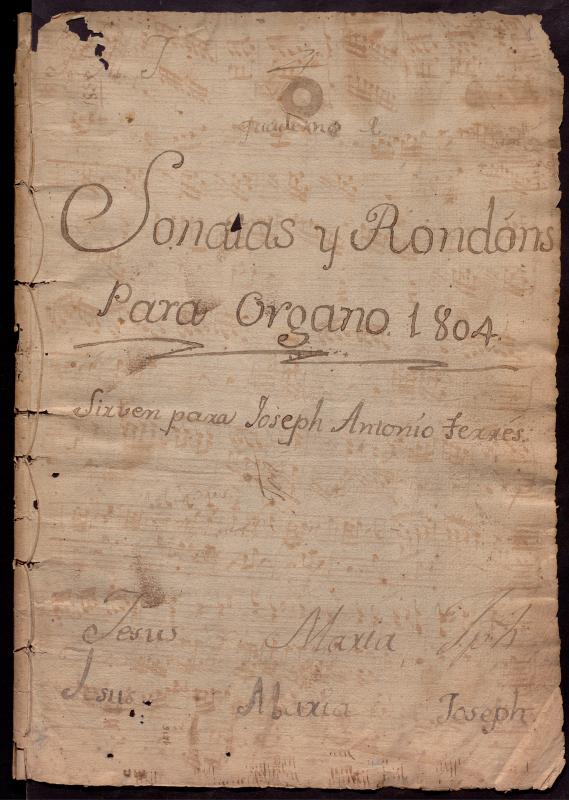 quaderno
Sonatas y Rondóns
Para Organo. 1804.
Sirven para Joseph Antonio Ferrés.
Jesus Maria Jph
Jesus Maria Joseph